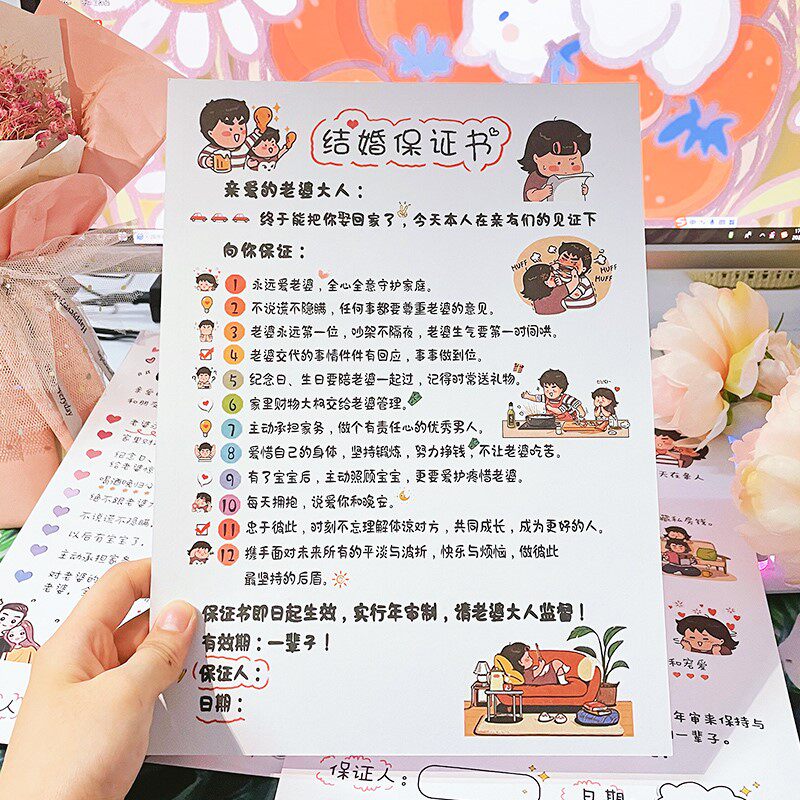 结婚保证书
亲爱的老婆大人：
终于能把你娶回家了，今天本人在亲友们的见证下
向你保证：
MUFF
MUFF
MUFF
1 永远爱老婆，全心全意守护家庭。
2 不说谎不隐瞒，任何事都要尊重老婆的意见。
3 老婆永远第一位，吵架不隔夜，老婆生气要第一时间哄。
4 老婆交代的事情件件有回应，事事做到位。
5 纪念日、生日要陪老婆一起过，记得时常送礼物。
6 家里财物大权交给老婆管理。
7 主动承担家务，做个有责任心的优秀男人。
8 爱惜自己的身体，坚持锻炼，努力挣钱，不让老婆吃苦。
9 有了宝宝后，主动照顾宝宝，更要爱护疼惜老婆。
10 每天拥抱，说爱你和晚安。
11 忠于彼此，时刻不忘理解体谅对方，共同成长，成为更好的人。
12 携手面对未来所有的平淡与波折，快乐与烦恼，做彼此
最坚持的后盾。
保证书即日起生效，实行年审制，请老婆大人监督！
有效期：一辈子！
保证人：
日期：
亲爱
和朋友
老婆
家里财
纪念日、
给老婆惊
喝酒晚归
绝不跟老婆
不说谎不隐瞒，
以后有宝宝了，
主动承担家务
对老婆的
老婆，
天在亲人
藏私房钱。
和宠爱
年审来保持与
一辈子。
保证人：
日期